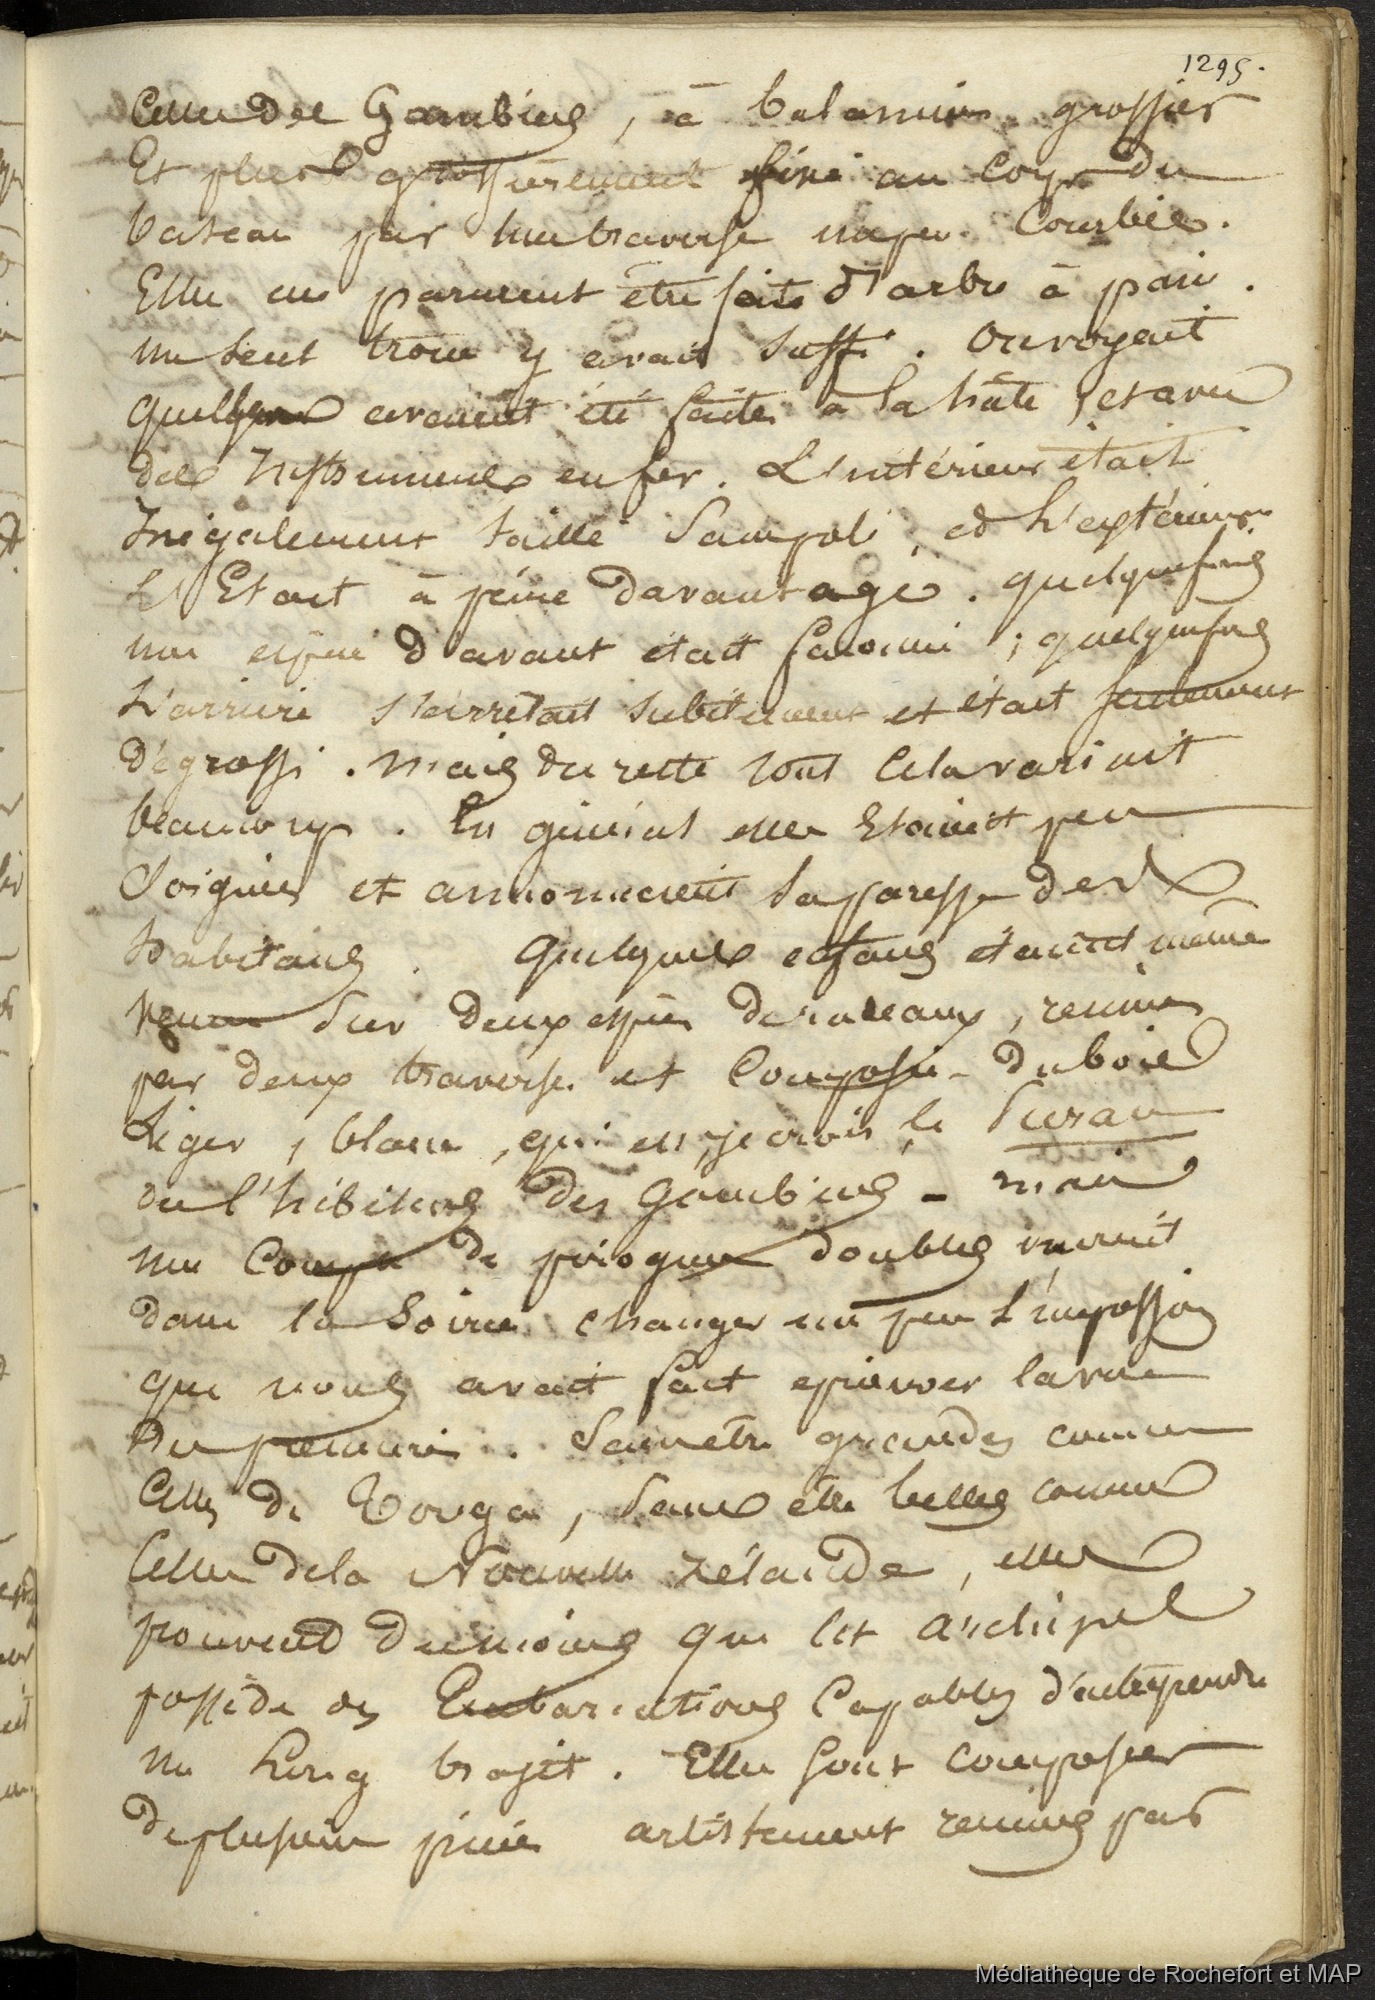 1295.
Celles des Gambiers, à balancier grossier
Et plus grossièrement fixé au corps du
bateau par une traverse un peu courbée.
Elles me parurent être faites d'arbre à pain.
un seul tronc y avait suffi. On voyait
quelles avaient été faites à la hâte, et avec
des Instrumens en fer. L'intérieur était
Inégalement taillé sans poli, et L'extérieur
L'Etait à peine davantage. quelquefois
une espèce d'avant était façonné ; quelquefois
L'arrière s'arrêtait subitement et était seulement
dégrossi. Mais du reste tout cela variait
beaucoup. En général elles Etaient peu
Soignées et annonçaient la paresse des
habitans. Quelques enfans étaient même
venus sur deux espèces de rateaux, réunies
par deux traverses et composées du bois
Léger, blanc, qui est, je crois, le Purau
ou l'hibiscus des Gambiers - mais
une couple de pirogues doubles vinrent
dans la Soirée changer un peu L'impression
que nous avait fait éprouver la vue
des premières. Sans être grandes comme
Celles de Tonga, Sans être belles comme
Celles de la Nouvelle Zélande, elles
prouvent du moins que cet archipel
possède des Embarcations Capables d'entreprendre
un Long trajet. Elles sont composées
de plusieurs pièces artistement réunies par
Médiathèque de Rochefort et MAP